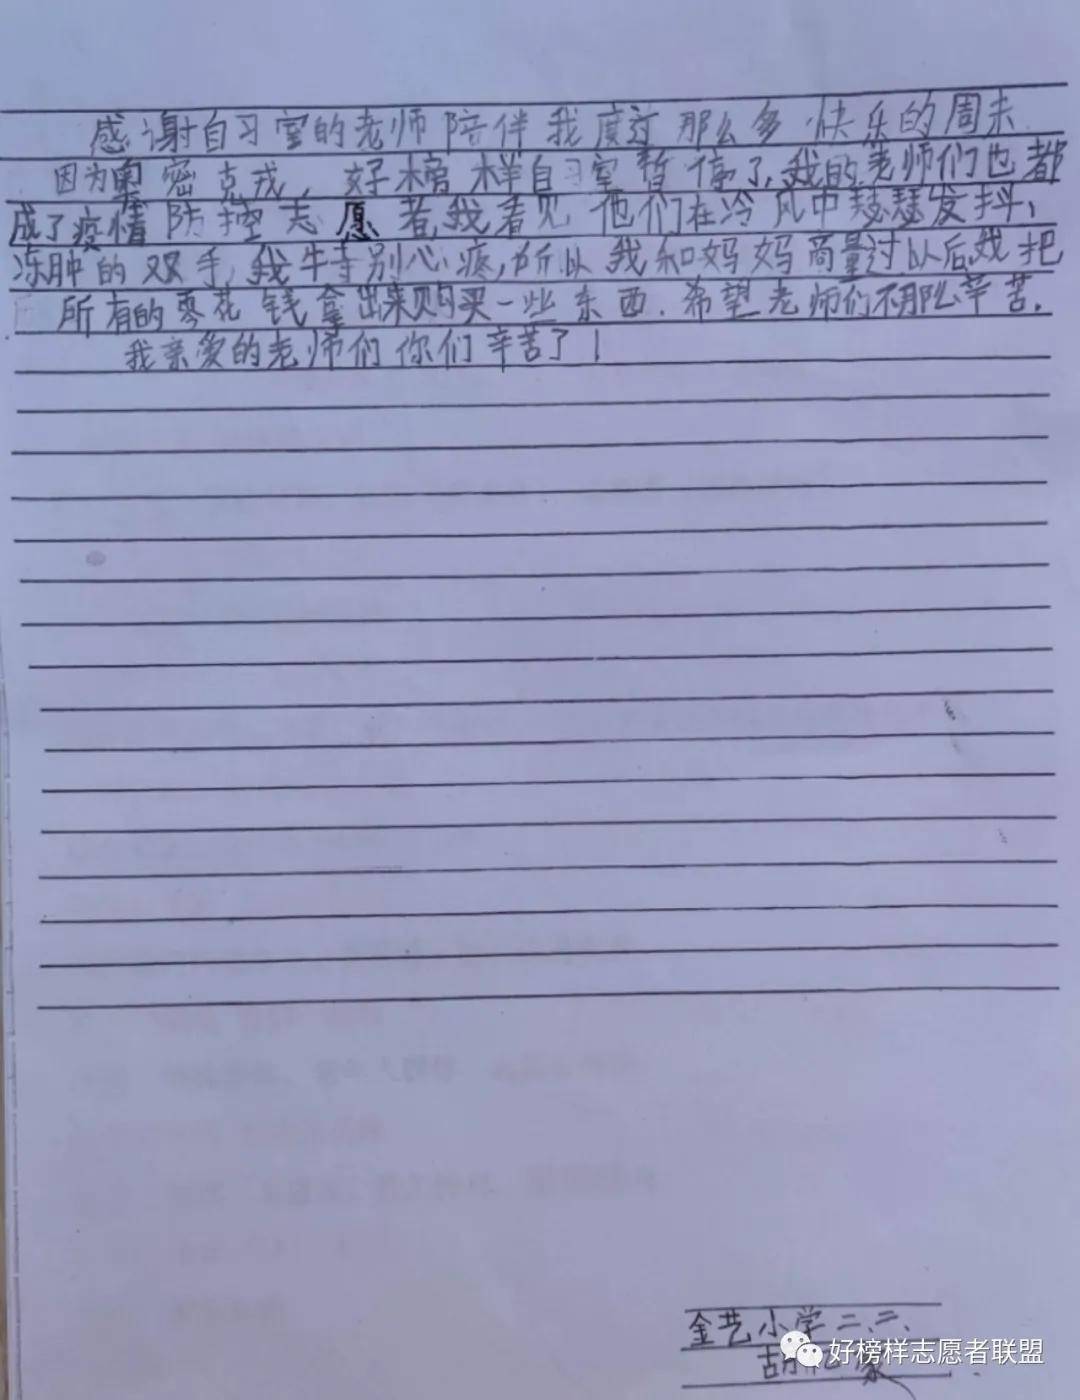 感谢自习室的老师陪伴我度过那么多快乐的周末
因为奥密克戎，好榜样自习室暂停了，我的老师们也都
成了疫情防控志愿者，我看见他们在冷风中瑟瑟发抖，
冻肿的双手，我特别心疼，所以我和妈妈商量过以后，我把
所有的零花钱拿出来购买一些东西．希望老师们不那么辛苦．
我亲爱的老师们你们辛苦了！
金艺小学二、二、
胡
好榜样志愿者联盟